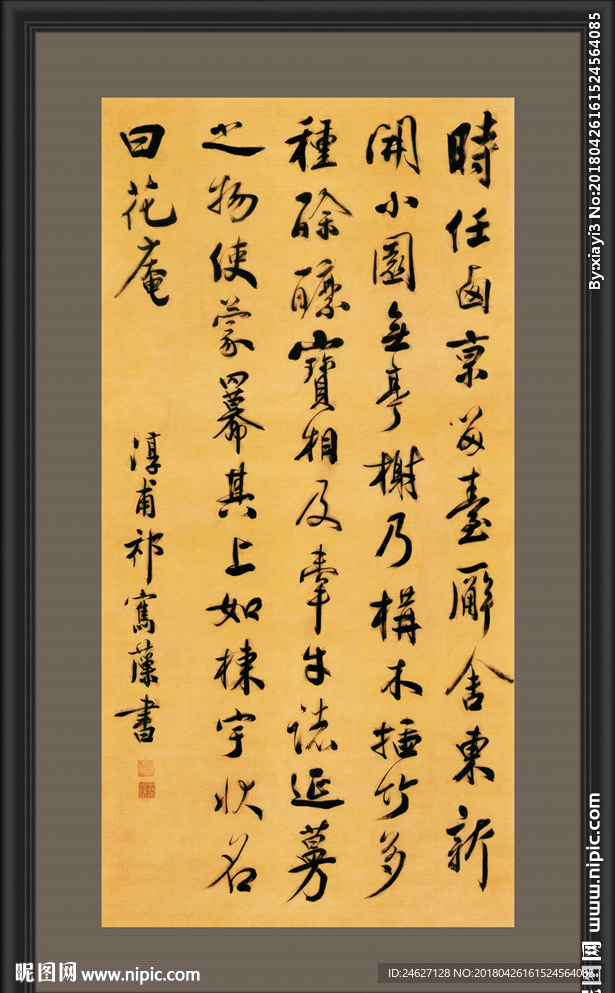 時任西京留臺廨舍東新
開小園無亭榭乃構木插竹多
種酴醾寶相及牽牛諸延蔓
之物使蒙冪其上如棟宇狀名
曰花庵
淳甫祁寯藻書
By:xiayi3 No:20180426161524564085
昵图网 www.nipic.com
昵图网 www.nipic.com
ID:24627128 NO:20180426161524564085